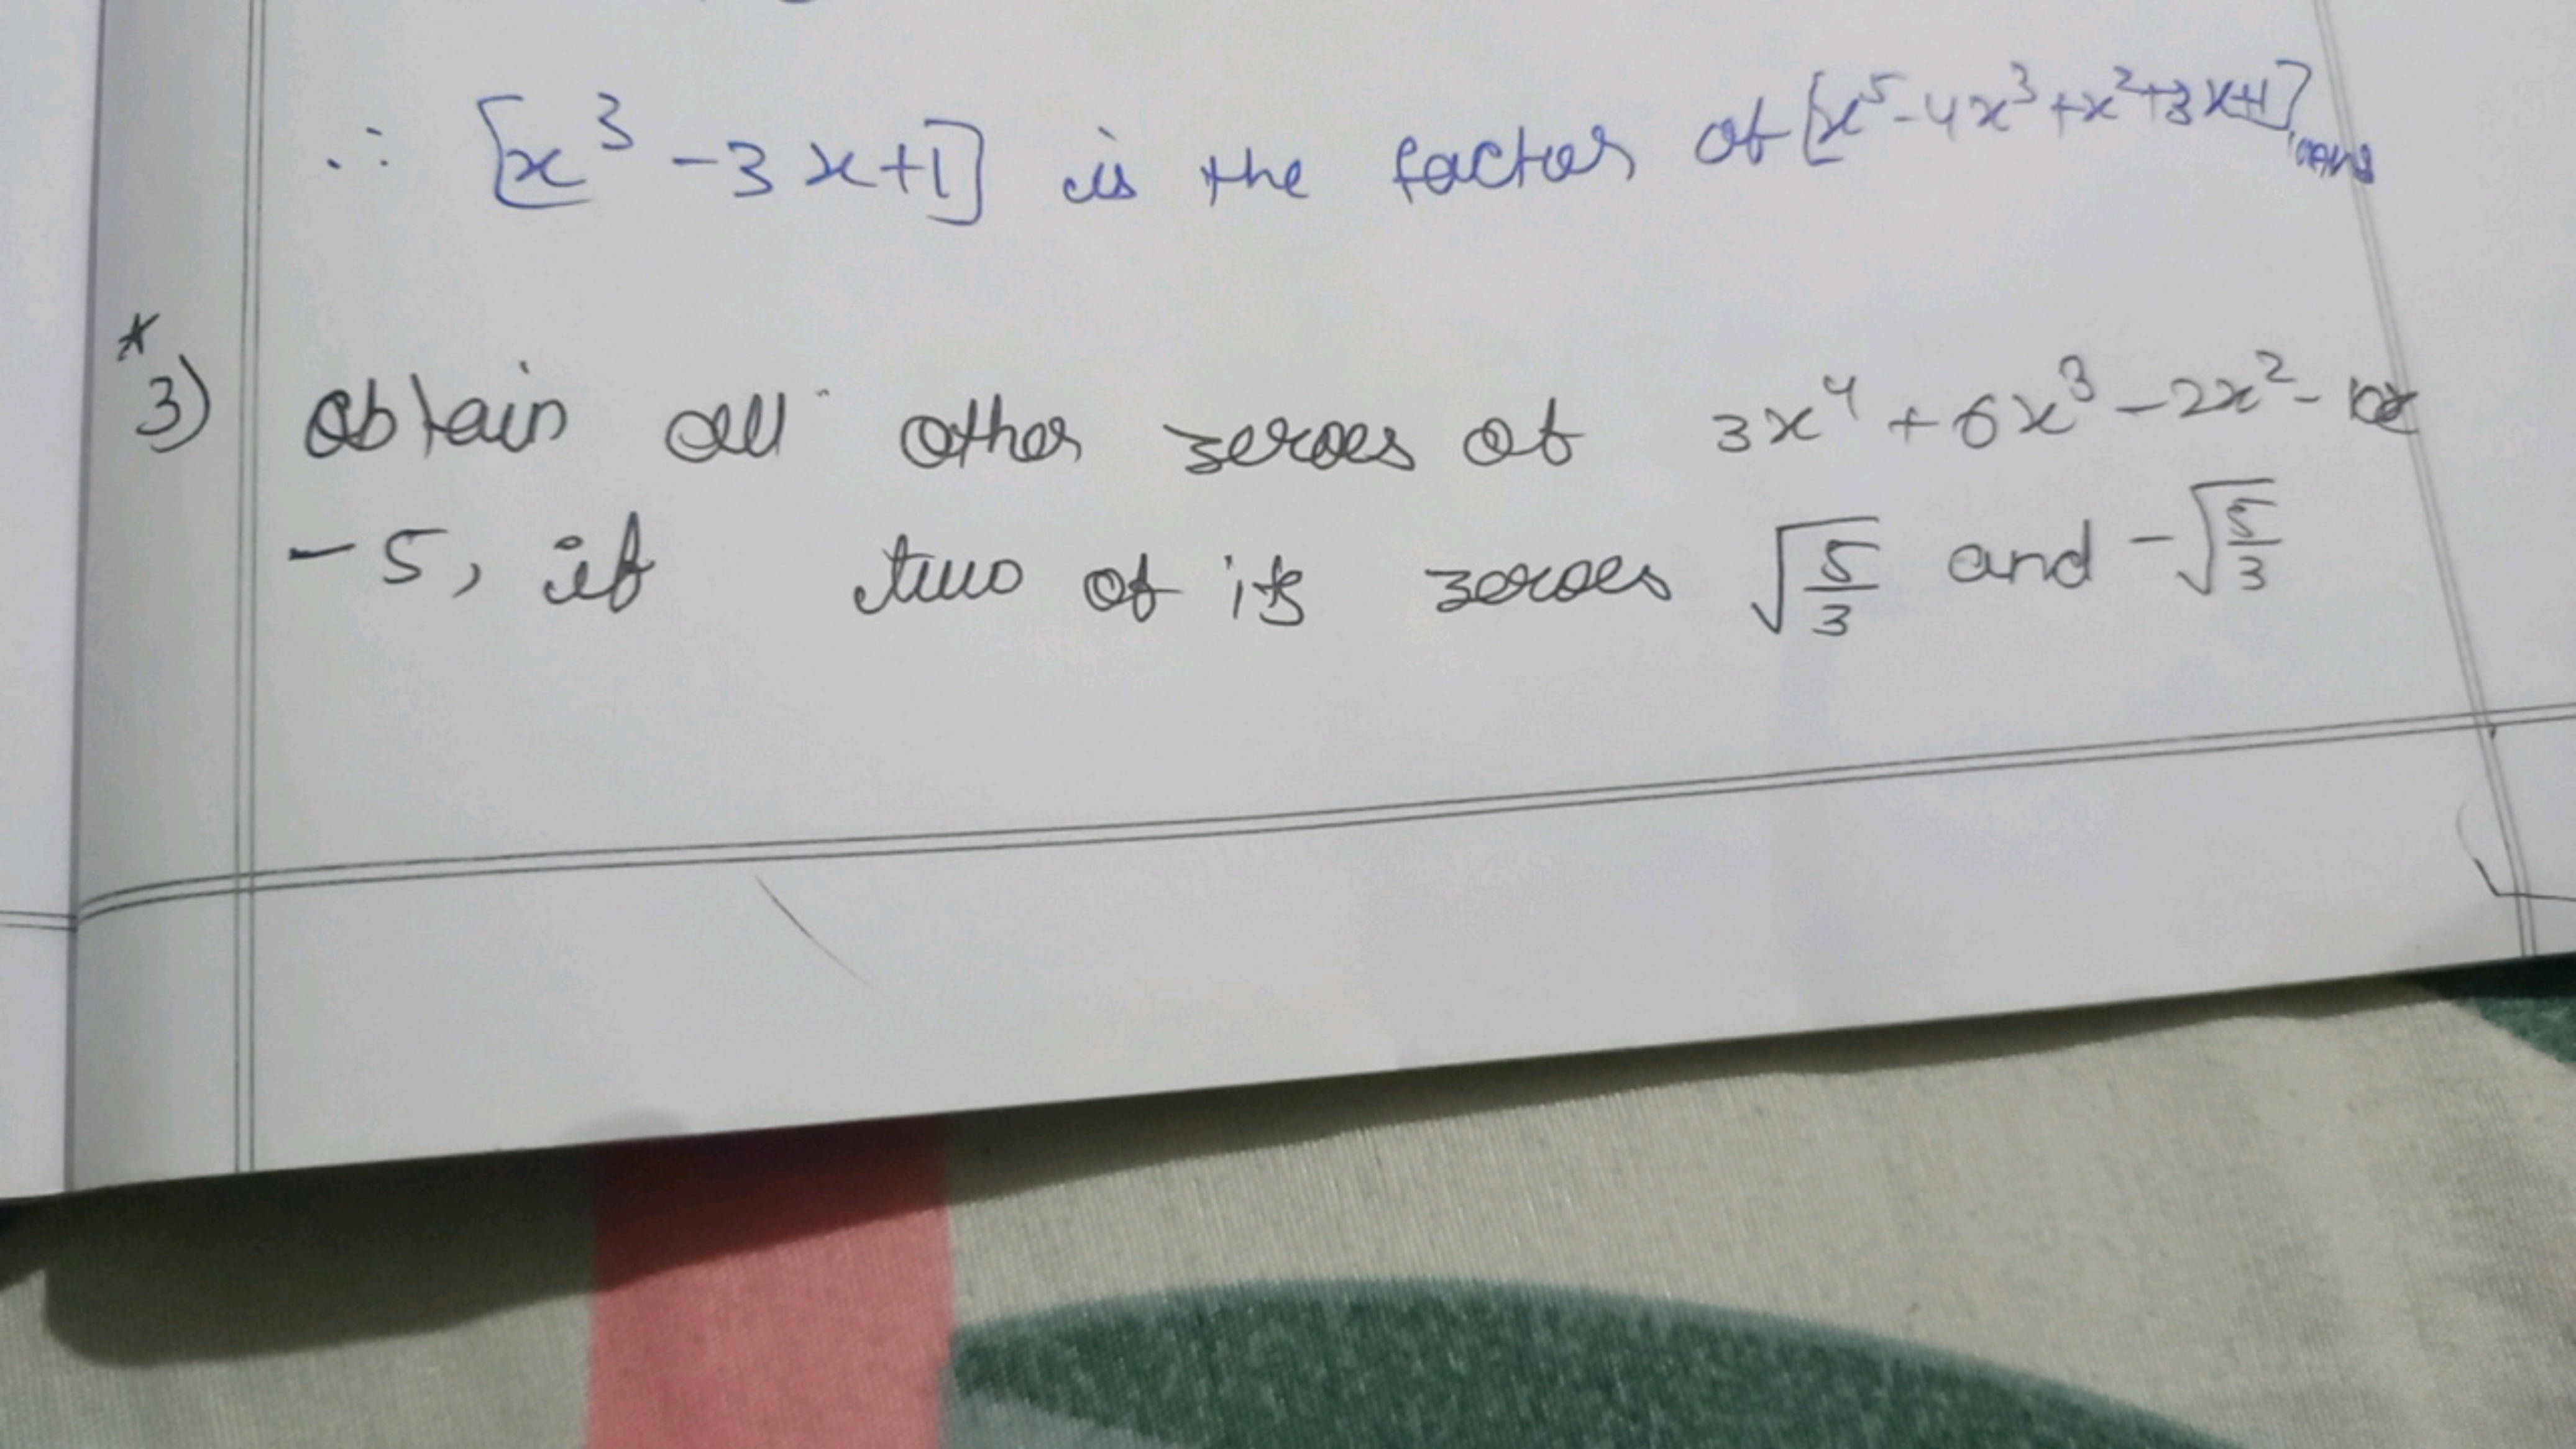 ∴ [x³ - 3x+1] is the factor of [x⁵-4x³+x²+3x+1] ,ans
*
3) Obtain all other zeroes of 3x⁴ + 6x³ - 2x² - 10x
- 5, if two of its zeroes √(5/3) and -√(5/3)